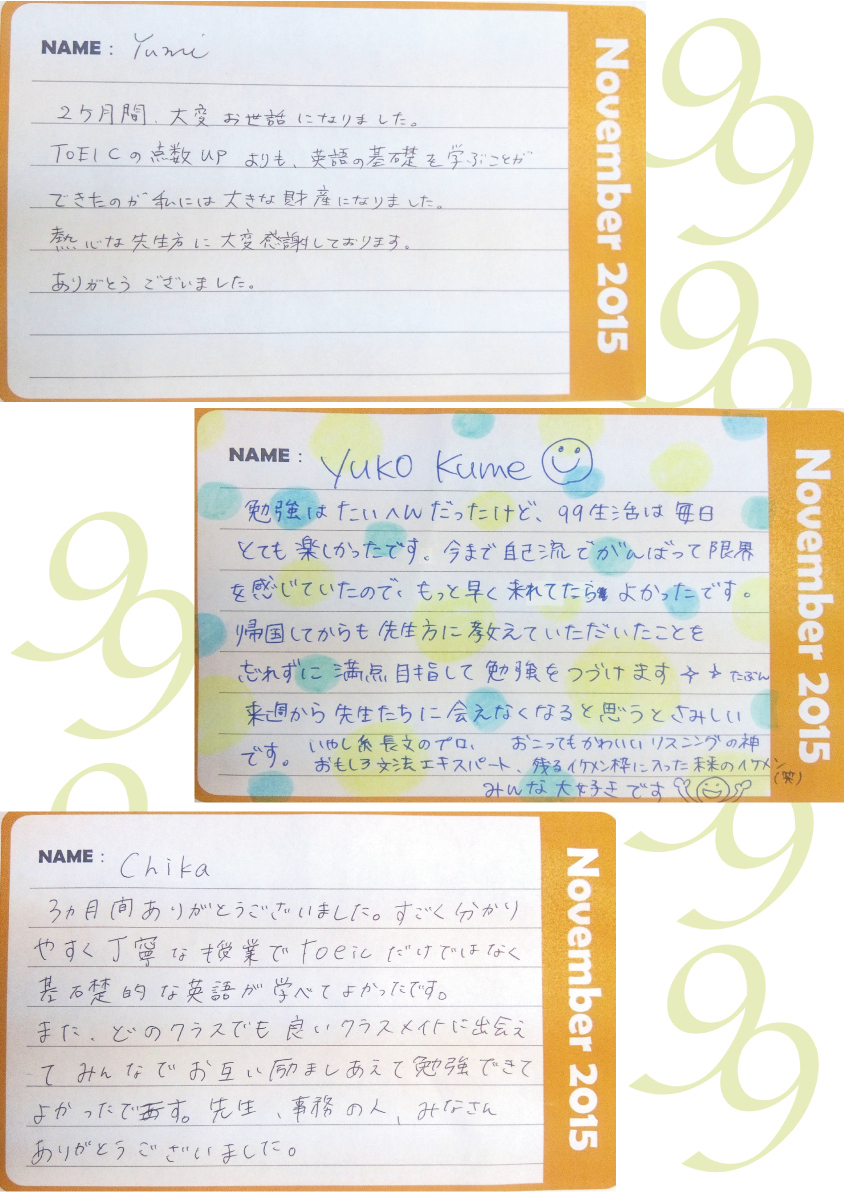 NAME : Yumi
2ケ月間、大変お世話になりました。
TOEICの点数UPよりも、英語の基礎を学ぶことが
できたのが私には大きな財産になりました。
熱心な先生方に大変感謝しております。
ありがとうございました。
November 2015
99
99
NAME : Yuko Kume
勉強はたいへんだったけど、99生活は毎日
とても楽しかったです。今まで自己流でがんばって限界
を感じていたので、もっと早く来れてたらよかったです。
帰国してからも先生方に教えていただいたことを
忘れずに満点目指して勉強をつづけます たぶん
来週から先生たちに会えなくなると思うとさみしい
です。 いやし系長文のプロ、 おこってもかわいいリスニングの神
おもしろ文法エキスパート、残るイケメン枠に入った未来のイケメン(笑)
みんな大好きです
November 2015
99
99
NAME : Chika
3ヵ月間ありがとうございました。すごく分かり
やすく丁寧な授業でtoeicだけではなく
基礎的な英語が学べてよかったです。
また、どのクラスでも良いクラスメイトに出会え
てみんなでお互い励ましあえて勉強できて
よかったです。先生、事務の人、みなさん
ありがとうございました。
November 2015
99
99